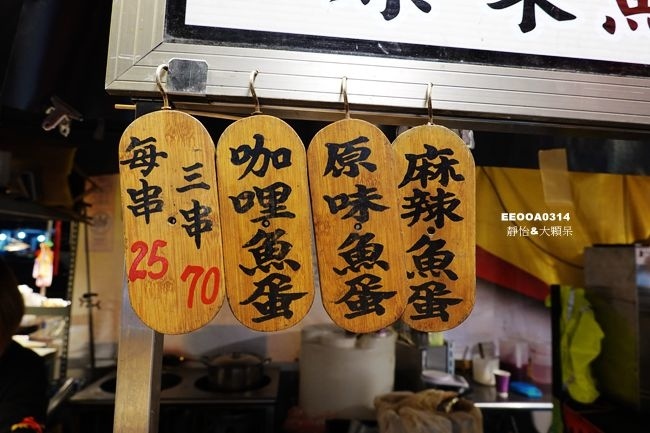 每串 25
三串 70
咖哩魚蛋
原味魚蛋
麻辣魚蛋
EEOOA0314
靜怡&大顆呆